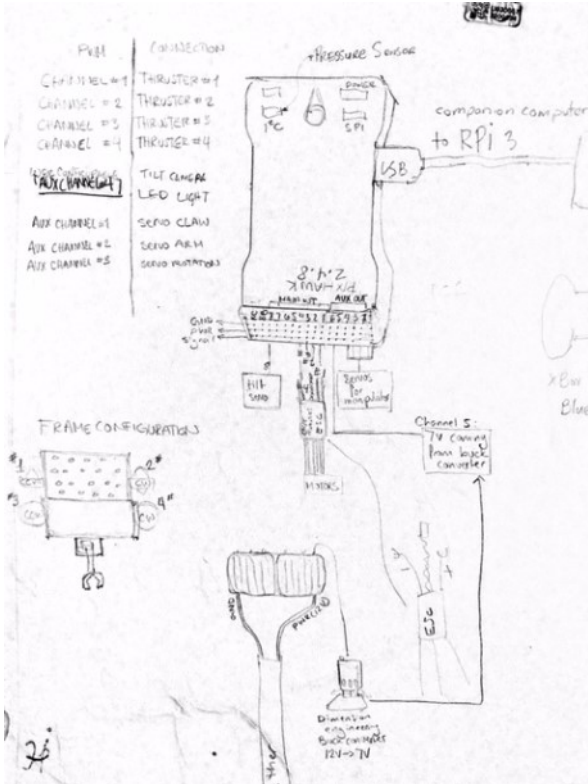 PWM | CONNECTION
CHANNEL #1 | THRUSTER #1
CHANNEL # 2 | THRUSTER #2
CHANNEL #3 | THRUSTER #3
CHANNEL #4 | THRUSTER #4
TILT CAMERA
AUX CHANNEL 4
LED LIGHT
AUX CHANNEL #1 | SERVO CLAW
AUX CHANNEL #2 | SERVO ARM
AUX CHANNEL #3 | SERVO ROTATION
PRESSURE SENSOR
POWER
I²C
SPI
USB
companion computer
to RPi 3
PIXHAWK
2.4.8
MAIN OUT
AUX OUT
Signal
tilt
servo
Servos
for
manipulator
MOTORS
Channel 5:
7V coming
from buck
converter
FRAME CONFIGURATION
#1
2#
#3
4#
CCW
CW
ESC
GND
PWR
Dimension
engineering
Buck converter
12V→7V
Blue